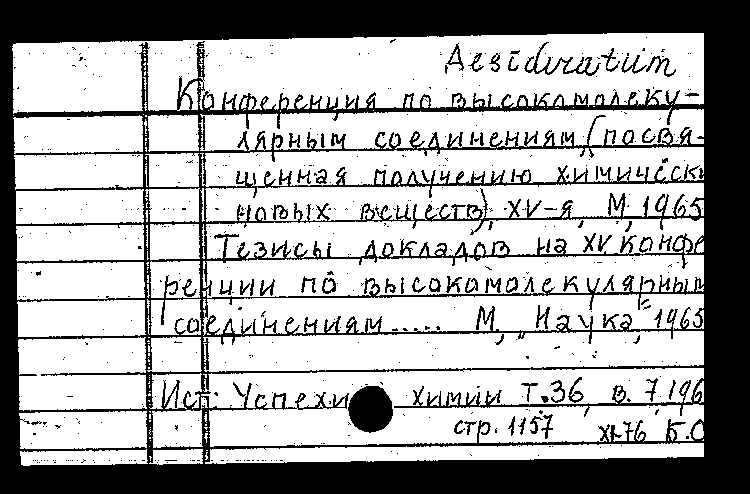 Desideratum
Конференция по высокомолеку-
лярным соединениям, (посвя-
щенная получению химическ
новых веществ), XV-я, М, 1965
Тезисы докладов на XV конфе
ренции по высокомолекулярным
соединениям..... М, „Наука", 1965
Ист: Успехи химии Т.36, в. 7, 196
стр. 1157 XI-76 Б.О